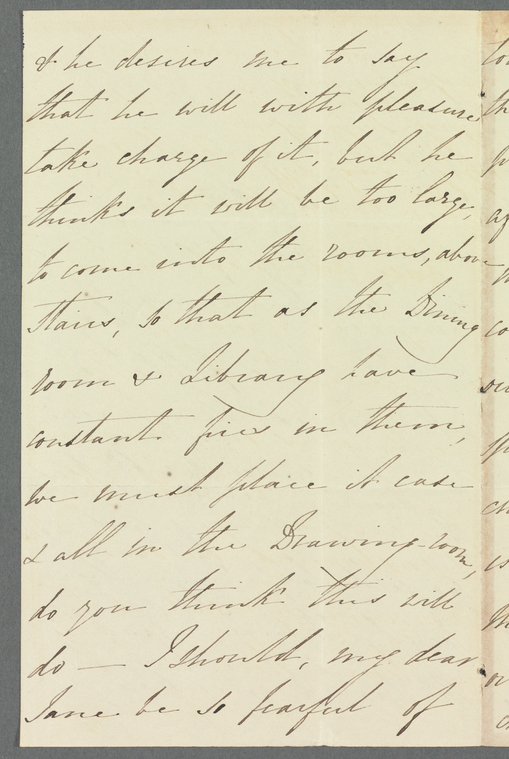 & he desires me to say
that he will with pleasure
take charge of it, but he
thinks it will be too large,
to come into the rooms, above
stairs, so that as the Dining
room & Library have
constant fires in them,
we must place it case
& all in the Drawing-room,
do you think this will
do — I should, my dear
Jane be so fearful of